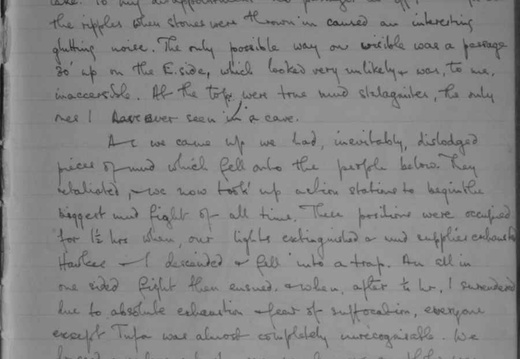 the ripples when stones were thrown in caused an interesting
glutting noise. The only possible way on visible was a passage
30' up on the E. side, which looked very unlikely & was, to me,
inaccessible. At the top were true mud stalagmites, the only
ones I have ever seen in a cave.
As we came up we had, inevitably, dislodged
pieces of mud which fell onto the people below. They
retaliated, & we now took up action stations to begin the
biggest mud fight of all time. These positions were occupied
for 1½ hrs when, our lights extinguished & mud supplies exhausted
Hawkes & I descended & fell into a trap. An all in
one sided fight then ensued, & when, after ½ hr, I surrendered
due to absolute exhaustion & fear of suffocation, everyone
except Tufa was almost completely unrecognisable. We